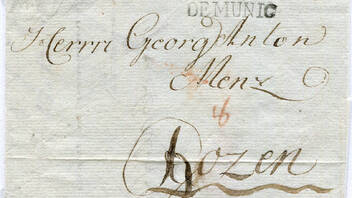 DE MUNIC
Herrn Georg Anton
Menz
Bozen